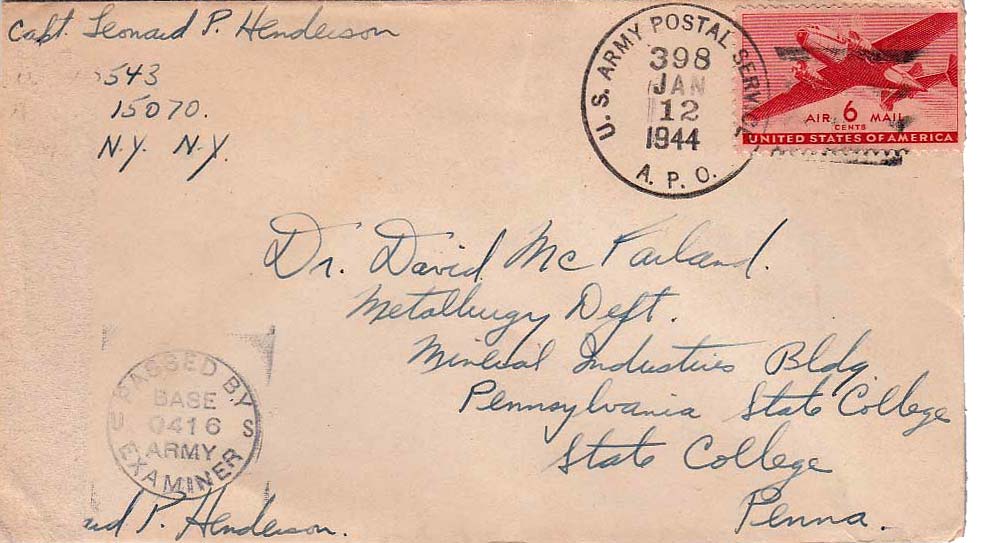 Capt. Leonard P. Henderson
543
15070.
N.Y. N.Y.
U.S. ARMY POSTAL SERVICE
398
JAN
12
1944
A. P. O.
AIR 6 MAIL
CENTS
UNITED STATES OF AMERICA
Dr. David McFarland.
Metallurgy Dept.
Mineral Industries Bldg.
Pennsylvania State College
State College
Penna.
PASSED BY
BASE
U 0416 S
ARMY
EXAMINER
P. Henderson.